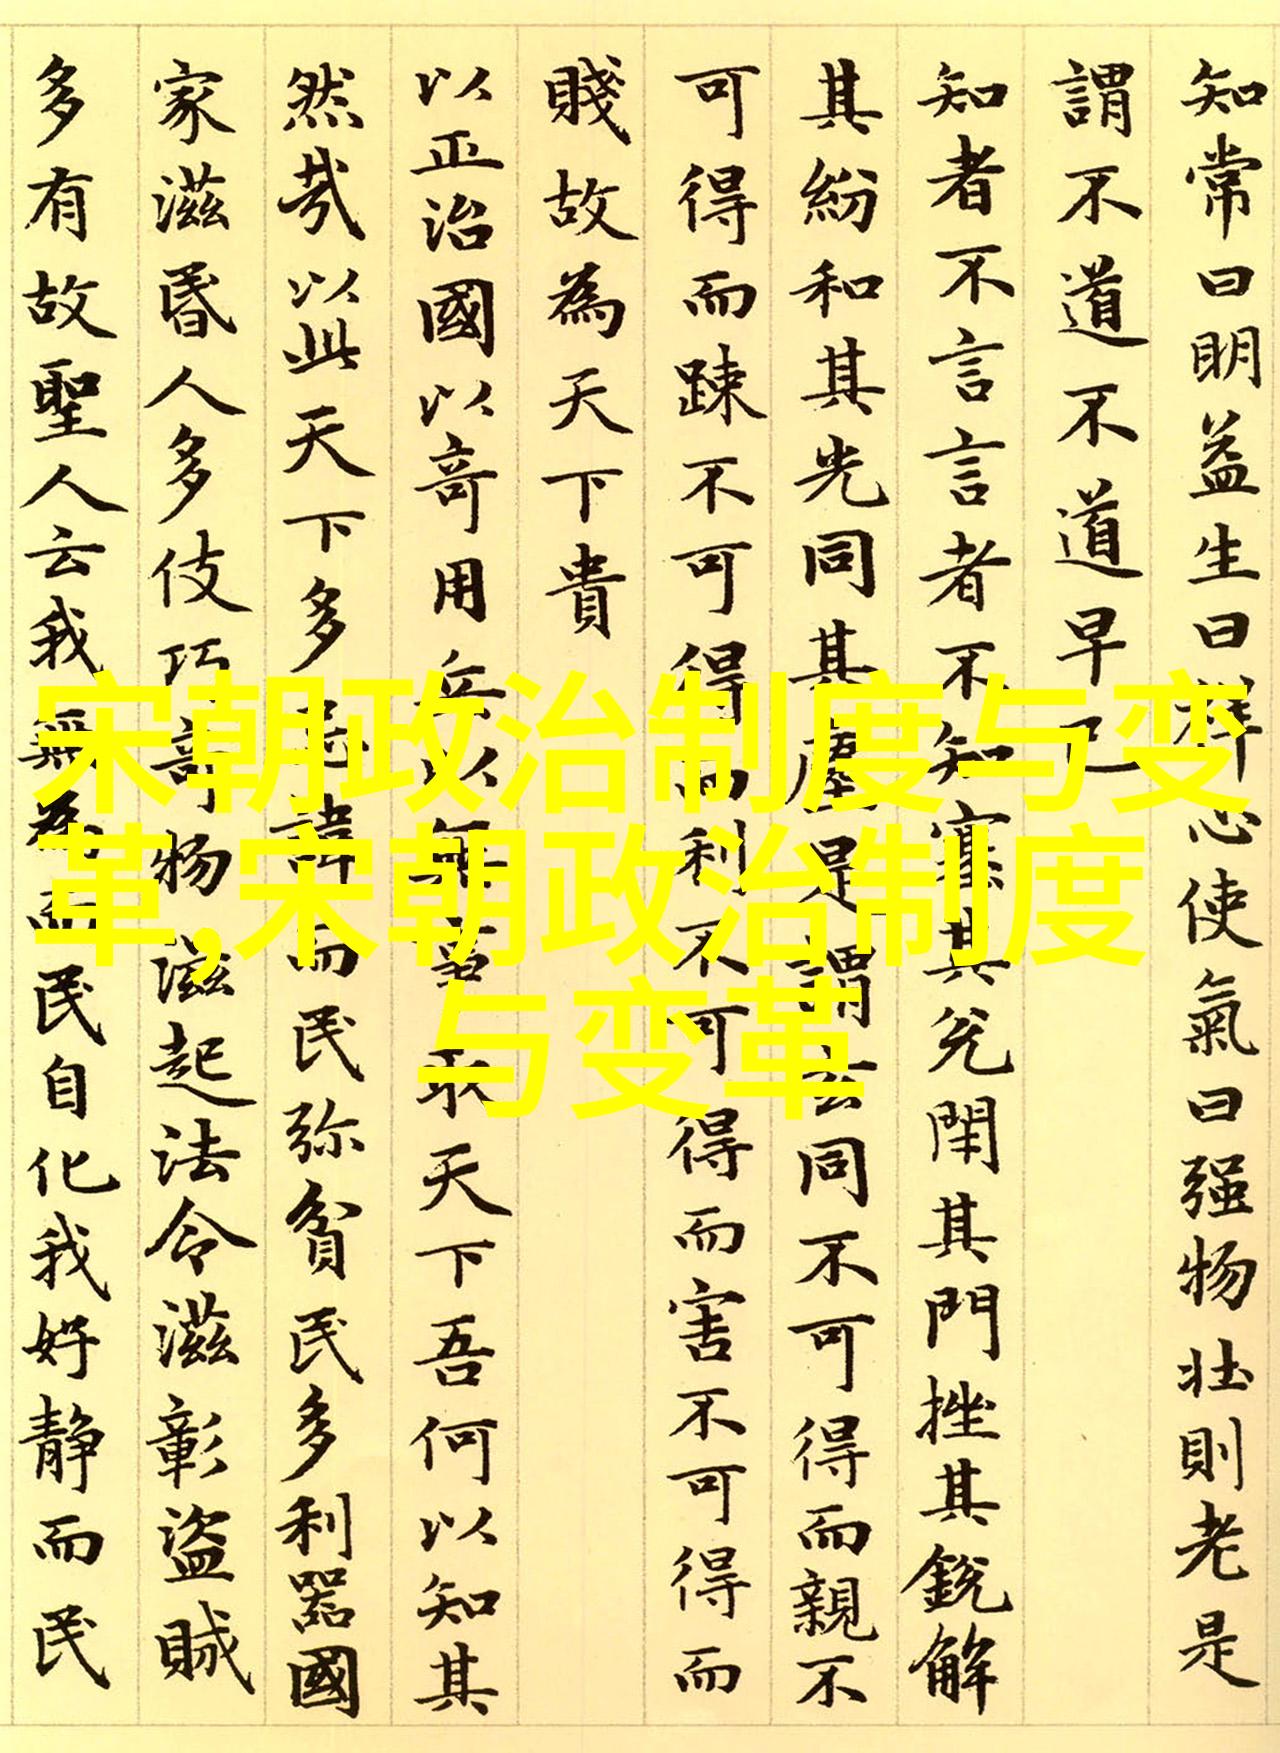 知常曰明益生曰祥心使氣曰强物壯則老是
謂不道不道早已
知者不言言者不知塞其兌閉其門挫其銳解
其紛和其光同其塵是謂玄同不可得而親不
可得而踈不可得而利不可得而害不可得而
賤故為天下貴
以正治國以奇用兵以無事取天下吾何以知其
然哉以此天下多忌諱而民弥貧民多利器國
家滋昬人多伎巧奇物滋起法令滋彰盜賊
多有故聖人云我無為而民自化我好静而民
宋朝政治制度与变
革,宋朝政治制度
与变革